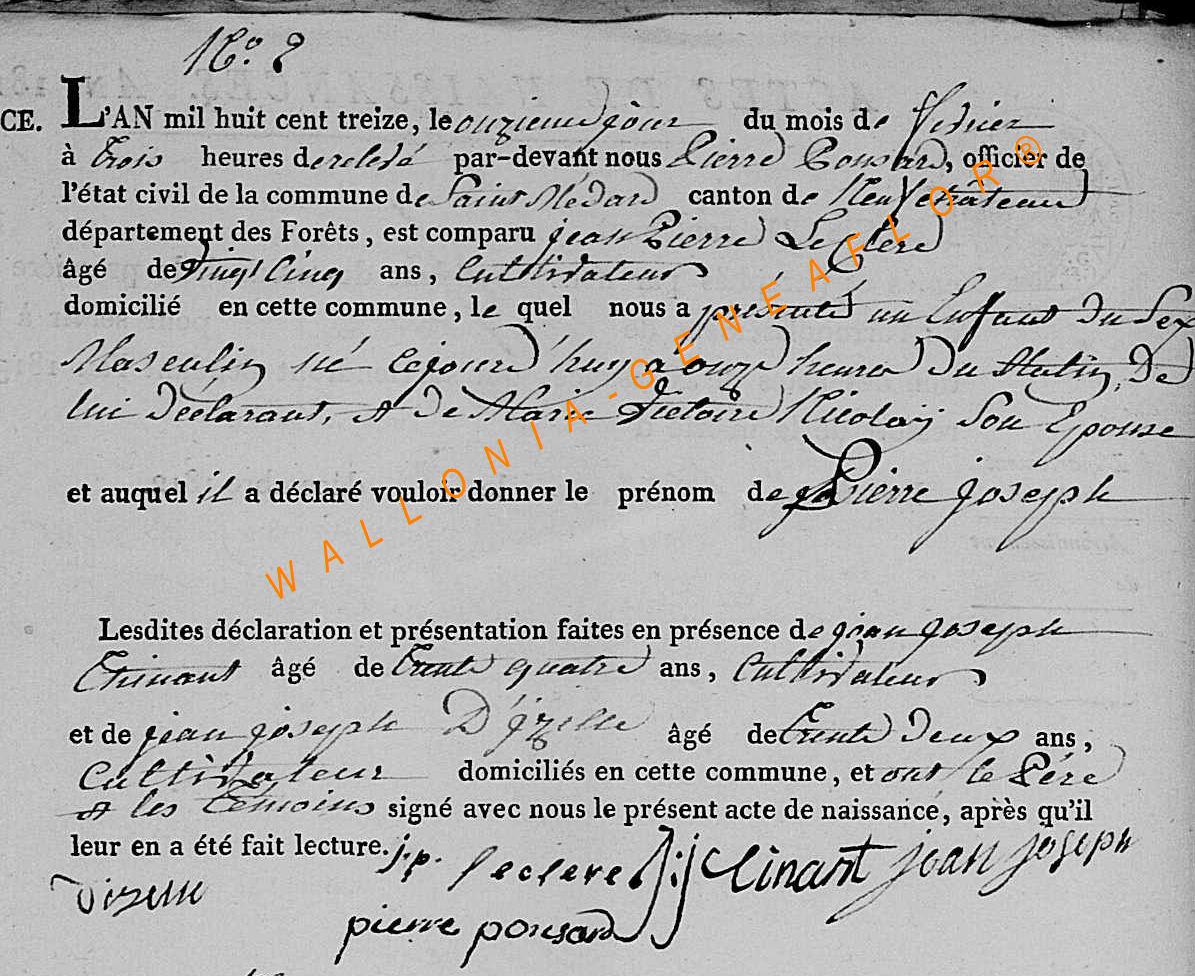 N.º 2
CE. L'AN mil huit cent treize, le onzieme jour du mois de fevrier
à trois heures de relevé par-devant nous Pierre Ponsard, officier de
l'état civil de la commune de Saint Médard canton de Neufchâteau
département des Forêts, est comparu jean Pierre Le Clere
âgé de vingt Cinq ans, Cultivateur
domicilié en cette commune, le quel nous a présenté un Enfant du Sex
Masculin né cejourd'huy a onze heures du Matin, de
lui déclarant, et de Marie Victoire Nicolaÿ Son Epouse
et auquel il a déclaré vouloir donner le prénom de Pierre joseph
Lesdites déclaration et présentation faites en présence de jean joseph
âgé de trente quatre ans, Cultivateur
et de jean joseph D'jzelle âgé de trente deux ans,
Cultivateur domiciliés en cette commune, et ont le Pére
et les témoins signé avec nous le présent acte de naissance, après qu'il
leur en a été fait lecture. j.p. leclere j:j Clinart jean joseph
Dizelle
pierre ponsard
WALLONIA-GENEAFLOR®